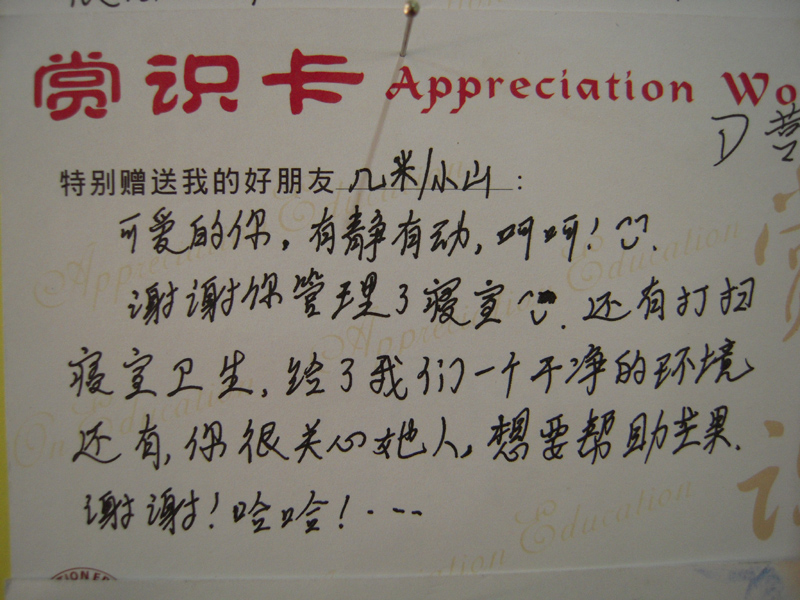 赏识卡 Appreciation Wo
D营
特别赠送我的好朋友 几米/小山 :
可爱的你，有静有动，呵呵！
谢谢你管理了寝室. 还有打扫
寝室卫生，给了我们一个干净的环境
还有，你很关心她人，想要帮助芒果.
谢谢！哈哈！·--